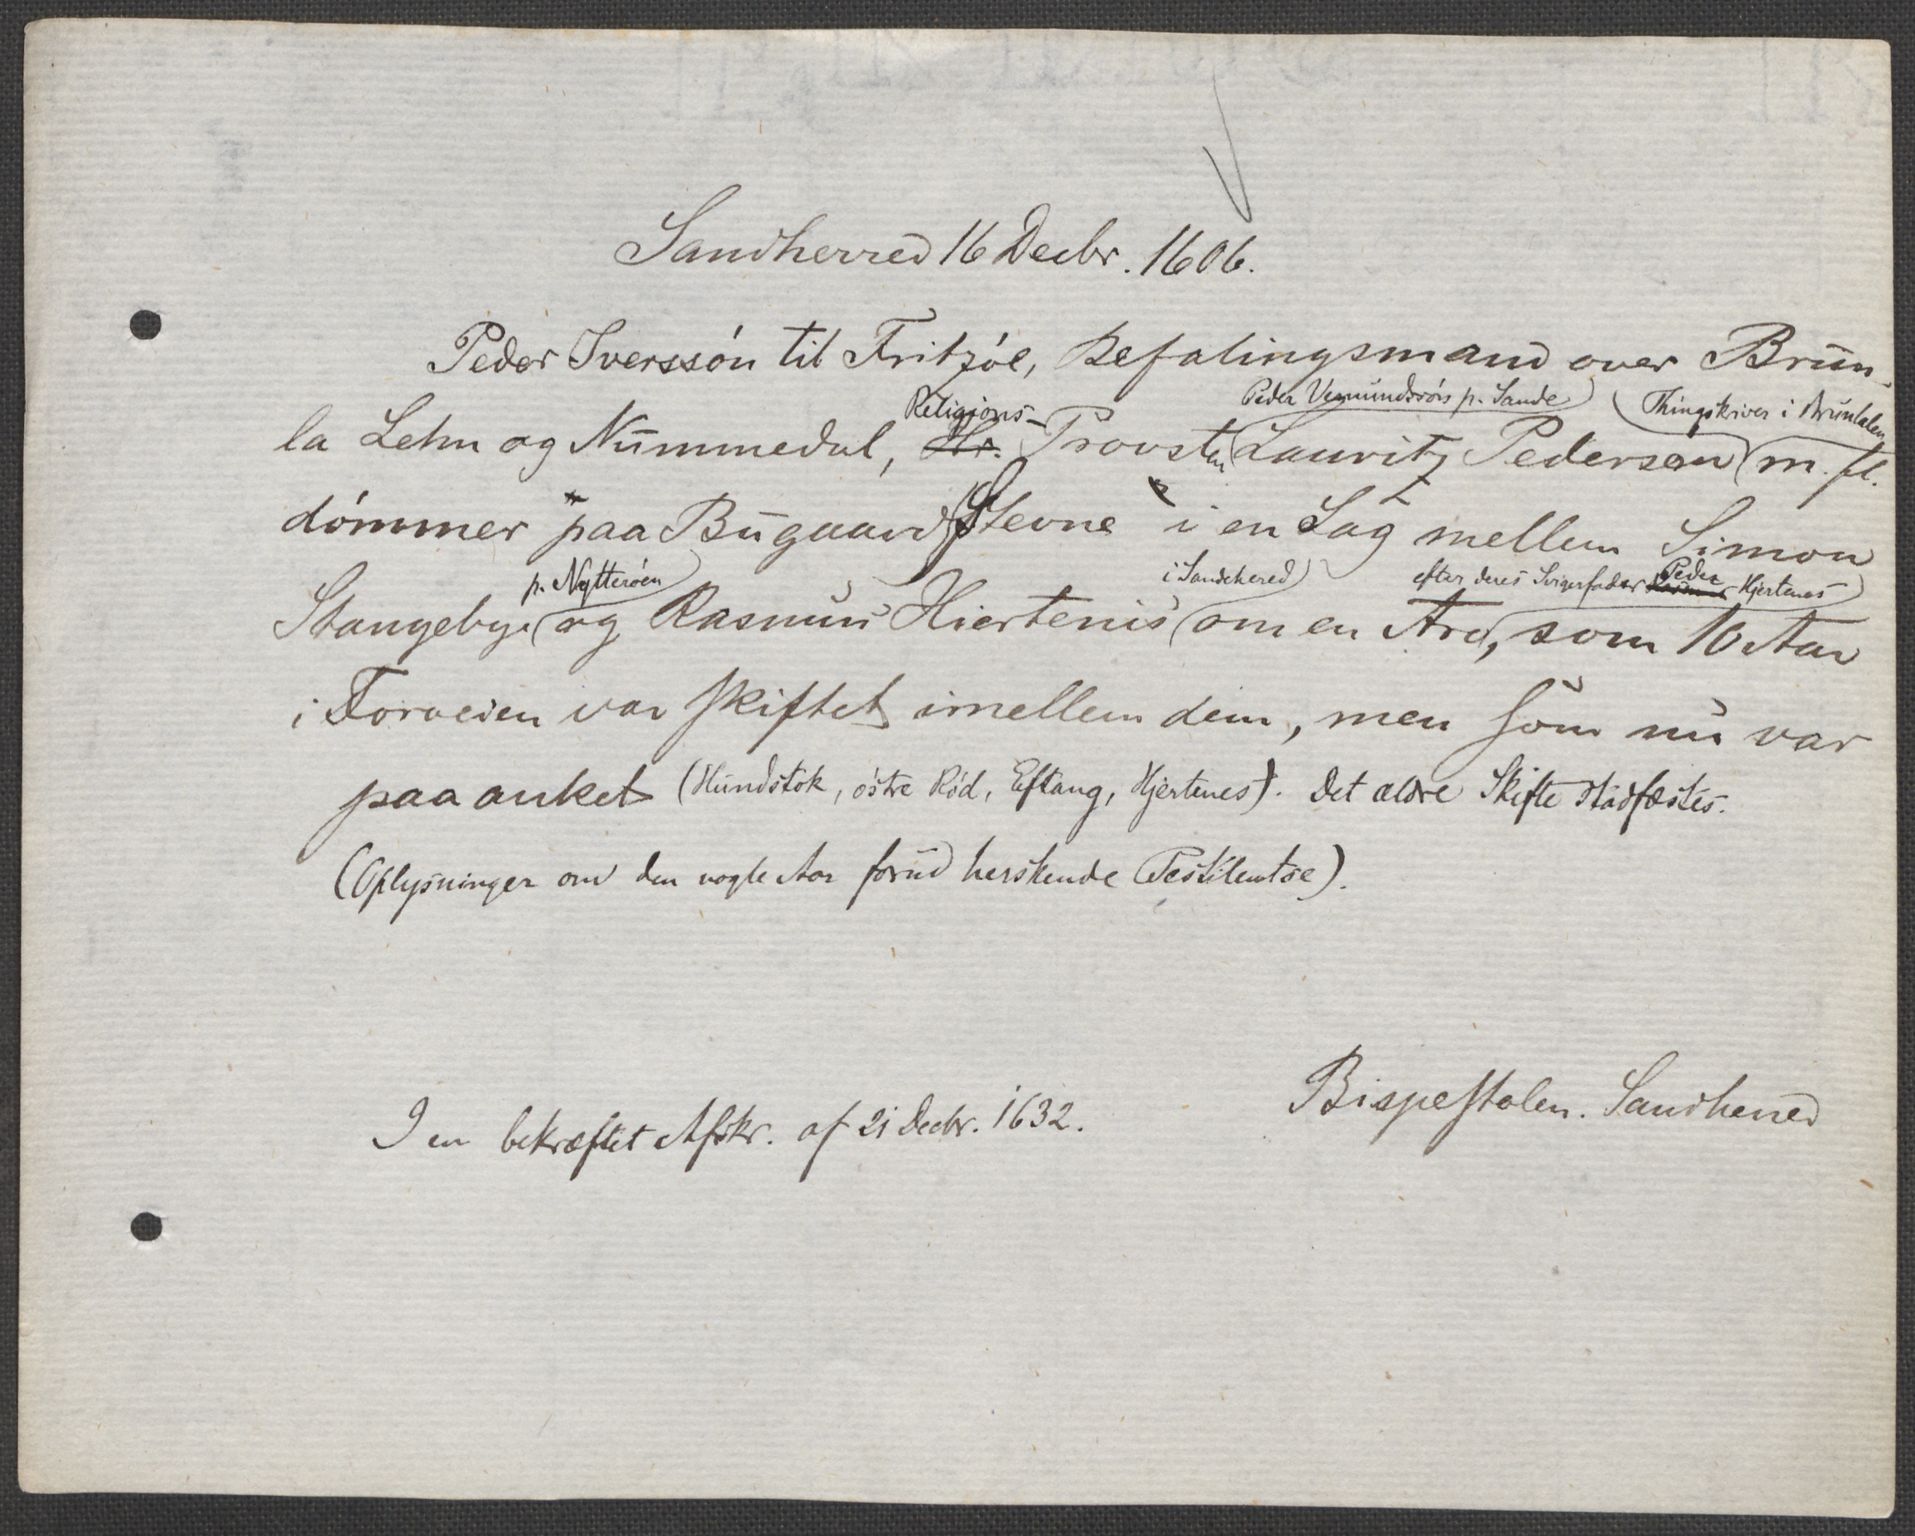 Sandherred 16 Decbr. 1606.
Peder Iverssön til Fritzöe, Befalingsmand over Brun-
Religions- Peder Vemundssön p. Sande Thingskriver i Brunlalen
la Lehn og Nummedal, Hr. Provsten Lauritz Pedersøn m. fl.
dömmer paa Bugaard Stevne i en Sag mellem Simon
p. Nøtterøen i Sandehered efter deres Svigerfader Peder Hjertenes
Stangebye og Rasmus Hiertenis om en Arv, som 10 Aar
i Forveien var skiftet imellem dem, men som nu var
paaanket (Hundstok, østre Röd, Eftang, Hjertenes). Det ældre Skifte stadfæstes.
(Oplysninger om den nogle Aar forud herskende Pestilentse).
Bispestolen. Sandherred
I en bekræftet Afskr. af 21 Decbr. 1632.